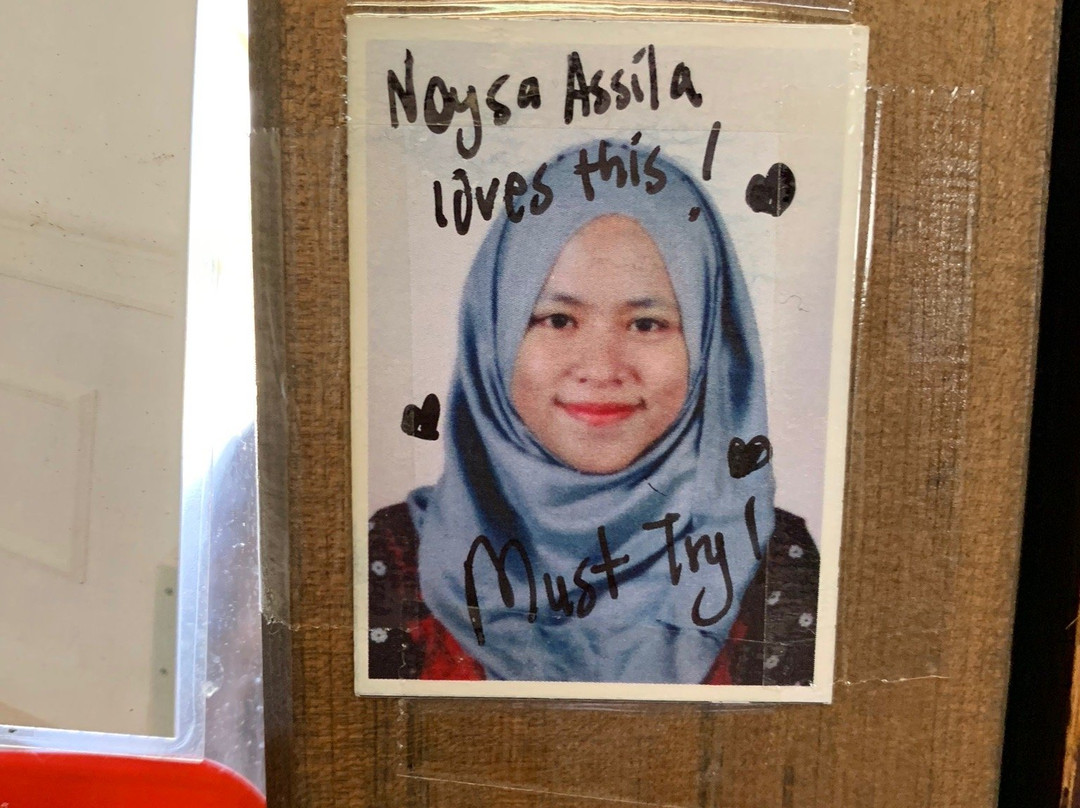 Naysa Assila
loves this!
Must Try!